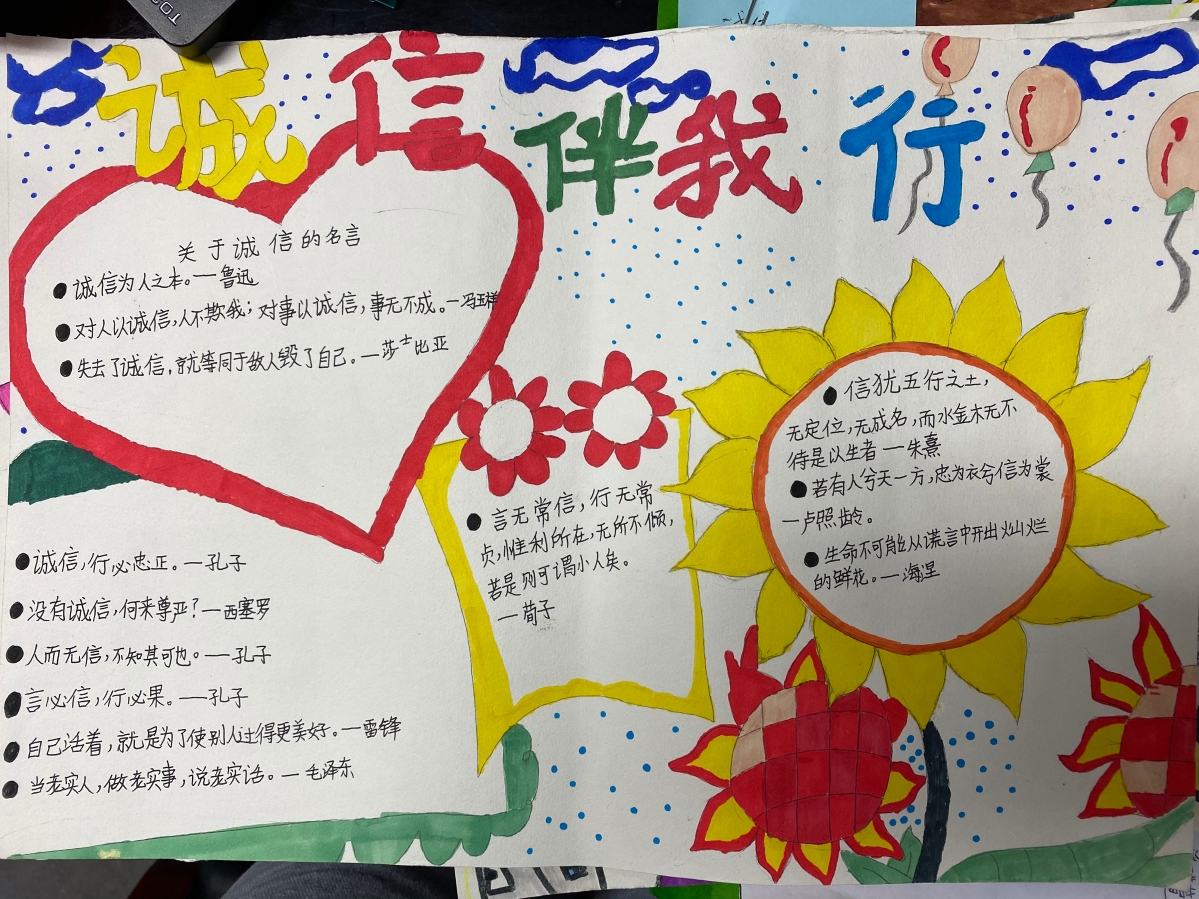 诚信伴我行
关于诚信的名言
●诚信为人之本。—鲁迅
●对人以诚信,人不欺我;对事以诚信,事无不成。—冯玉祥
●失去了诚信,就等同于敌人毁了自己。—莎士比亚
●诚信,行必忠正。—孔子
●没有诚信,何来尊严?—西塞罗
●人而无信,不知其可也。—孔子
●言必信,行必果。—孔子
●自己活着,就是为了使别人过得更美好。—雷锋
●当老实人,做老实事,说老实话。—毛泽东
●言无常信,行无常
贞,惟利所在,无所不倾,
若是则可谓小人矣。
—荀子
●信犹五行之土,
无定位,无成名,而水金木无不
待是以生者—朱熹
●若有人兮天一方,忠为衣兮信为裳
—卢照龄。
●生命不可能从谎言中开出灿烂
的鲜花。—海涅